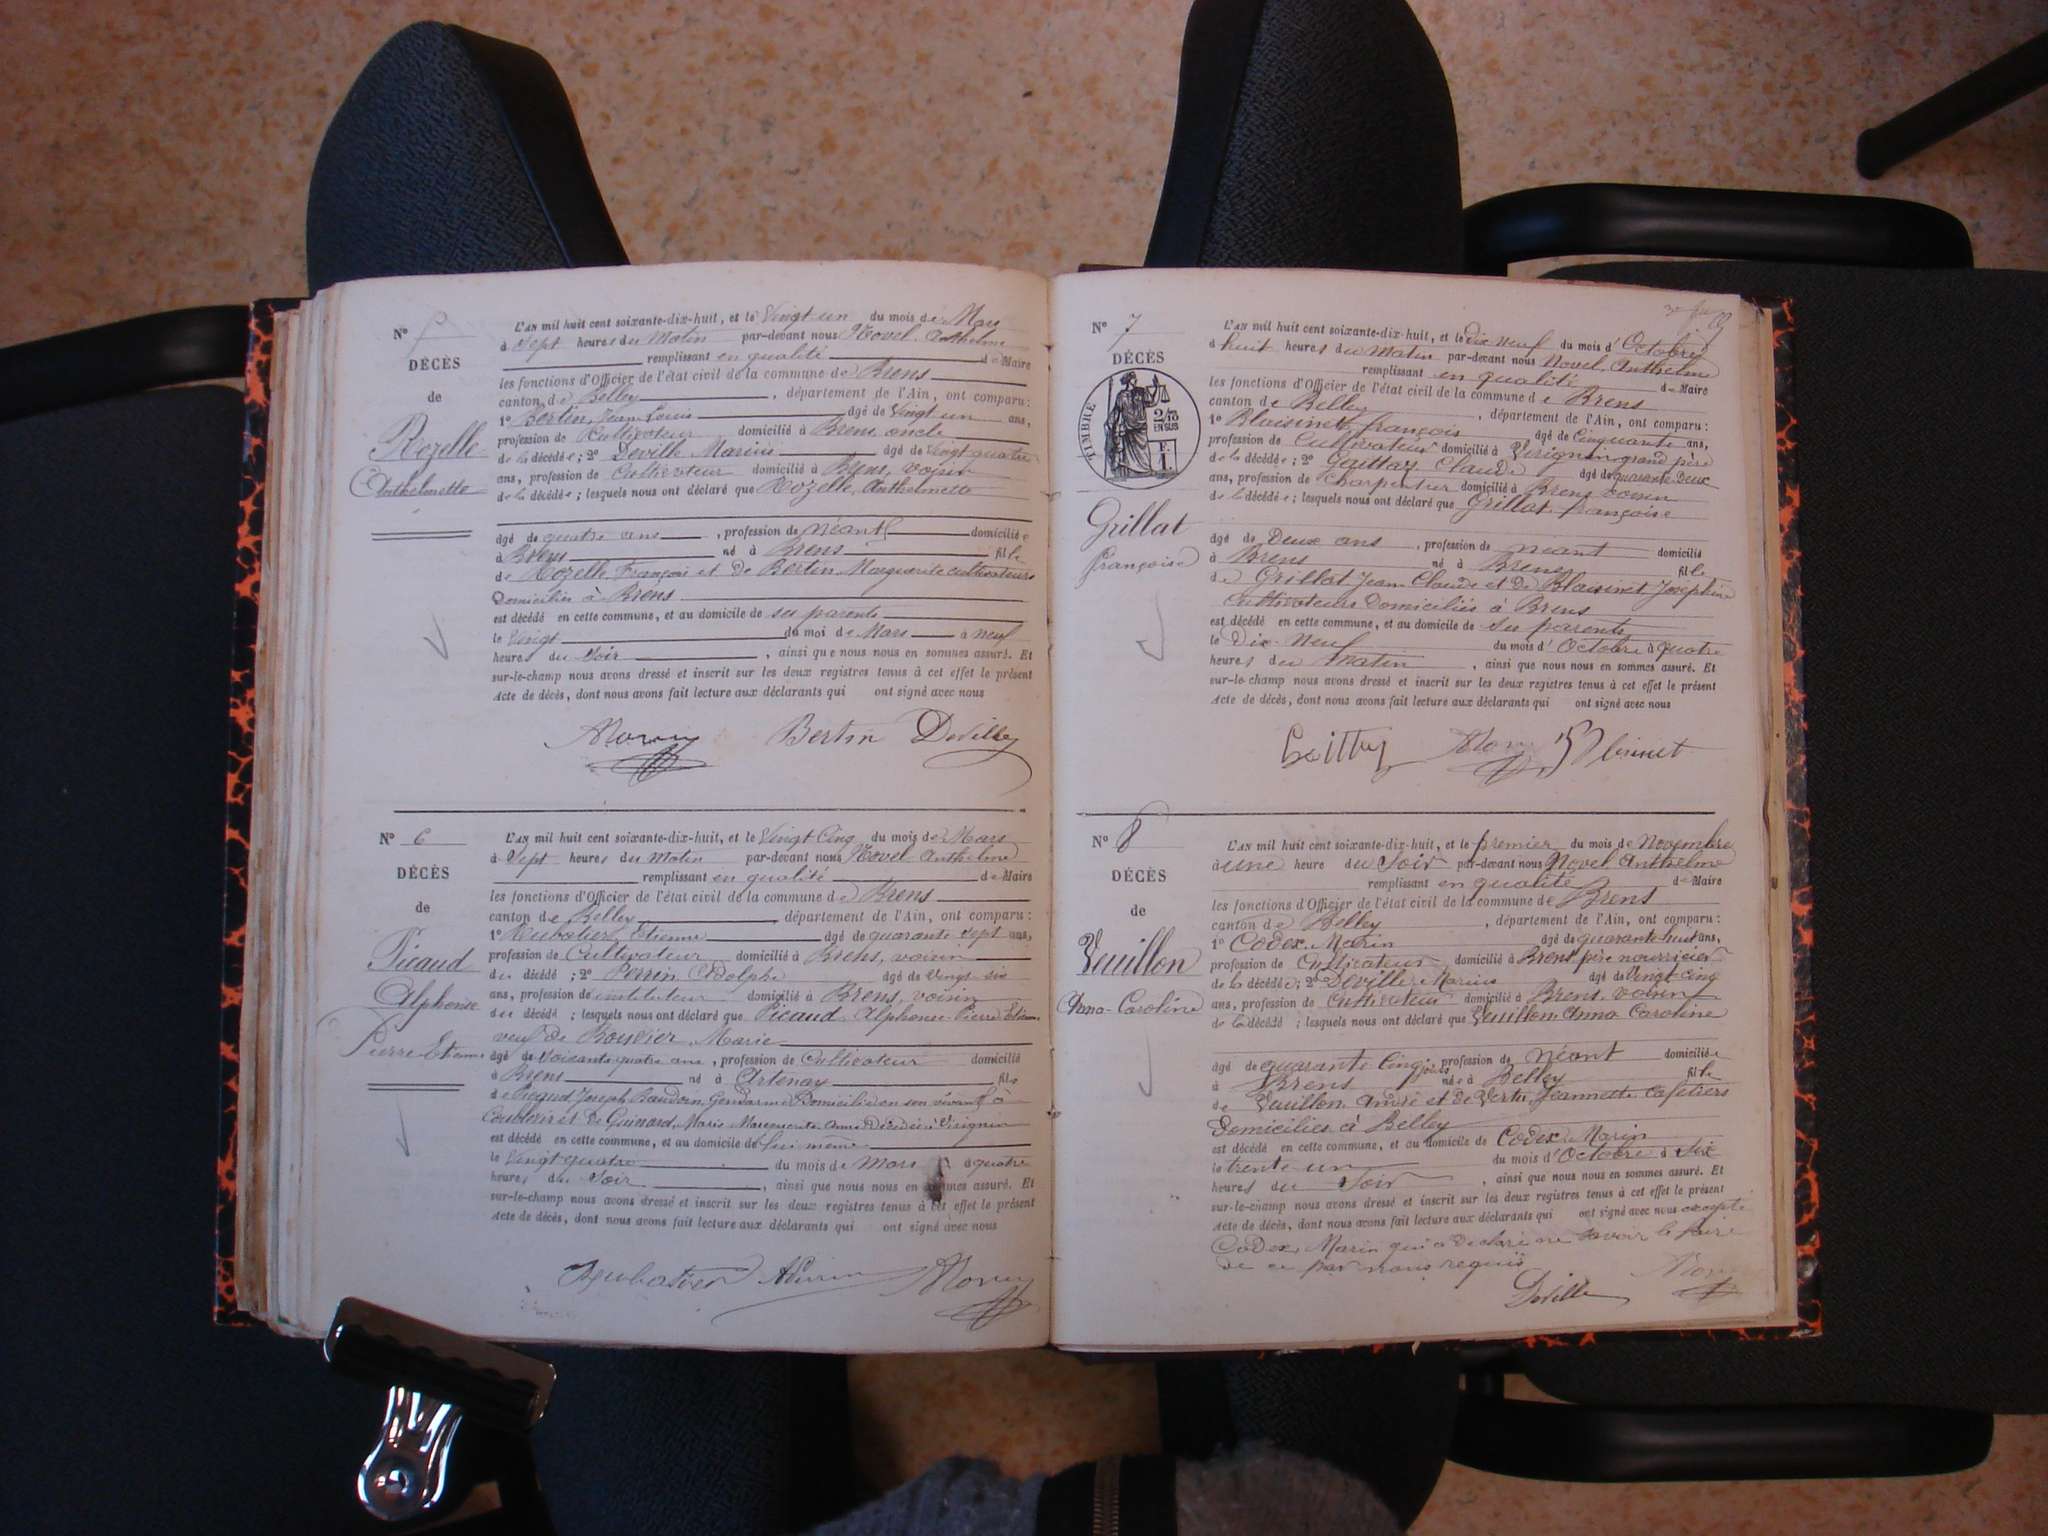 N° 5
DÉCÈS
de
Rozelle
Anthelmette
L'AN mil huit cent soixante-dix-huit, et le Vingt-un du mois de Mars
à sept heures du Matin par-devant nous Novel Anthelme
remplissant en qualité de Maire
les fonctions d'Officier de l'état civil de la commune de Brens
canton de Belley, département de l'Ain, ont comparu :
1° Bertin, Jean Louis âgé de Vingt un ans,
profession de Cultivateur domicilié à Brens, oncle
de la décédée ; 2° Deville Marius âgé de Vingt quatre
ans, profession de Cultivateur domicilié à Brens, voisin
de la décédée ; lesquels nous ont déclaré que Rozelle, Anthelmette
âgé de quatre ans, profession de néant domicilié e
à Brens né à Brens fille
de Rozelle François et de Bertin Marguerite cultivateurs
Domiciliés à Brens
est décédé en cette commune, et au domicile de ses parents
le Vingt du moi de Mars à neuf
heures du soir, ainsi que nous nous en sommes assuré. Et
sur-le-champ nous avons dressé et inscrit sur les deux registres tenus à cet effet le présent
Acte de décès, dont nous avons fait lecture aux déclarants qui ont signé avec nous
Bertin Deville
N° 6
DÉCÈS
de
Picaud
Alphonse
Pierre Etienne
L'AN mil huit cent soixante-dix-huit, et le Vingt Cinq du mois de Mars
à Sept heures du Matin par-devant nous Novel Anthelme
remplissant en qualité de Maire
les fonctions d'Officier de l'état civil de la commune de Brens
canton de Belley, département de l'Ain, ont comparu :
1° Etienne âgé de quarante sept ans,
profession de Cultivateur domicilié à Brens, voisin
du décédé ; 2° Perrin Adolphe âgé de Vingt six
ans, profession de instituteur domicilié à Brens, voisin
du décédé ; lesquels nous ont déclaré que Picaud Alphonse Pierre Etienne
veuf de Bouvier, Marie
âgé de soixante quatre ans, profession de Cultivateur domicilié
à Brens né à Artenay fils
de Picaud Joseph Baudoin, Gendarme Domicilié en son vivant à
et de Guinard, Marie Marguerite Anne Décédée à Virignin
est décédé en cette commune, et au domicile de lui même
le Vingt quatre du mois de Mars à quatre
heures du soir, ainsi que nous nous en sommes assuré. Et
sur-le-champ nous avons dressé et inscrit sur les deux registres tenus à cet effet le présent
Acte de décès, dont nous avons fait lecture aux déclarants qui ont signé avec nous
N° 7
DÉCÈS
TIMBRE
2/10
EN SUS
F.
1.
Grillat
Françoise
L'AN mil huit cent soixante-dix-huit, et le dix neuf du mois d'Octobre
à huit heures du Matin par-devant nous Novel, Anthelme
remplissant en qualité de Maire
les fonctions d'Officier de l'état civil de la commune de Brens
canton de Belley, département de l'Ain, ont comparu :
1° Blaisinet, françois âgé de Cinquante ans,
profession de Cultivateur domicilié à Virignin grand père
de la décédée ; 2° Claude âgé de quarante deux
ans, profession de Charpentier domicilié à Brens voisin
de la décédée ; lesquels nous ont déclaré que Grillat, françoise
âgé de Deux ans, profession de néant domicilié
à Brens né à Brens fille
de Grillat Jean Claude et de Blaisinet Joséphine
Cultivateurs Domiciliés à Brens
est décédé en cette commune, et au domicile de ses parents
le Dix-Neuf du mois d'Octobre à quatre
heures du Matin, ainsi que nous nous en sommes assuré. Et
sur-le-champ nous avons dressé et inscrit sur les deux registres tenus à cet effet le présent
Acte de décès, dont nous avons fait lecture aux déclarants qui ont signé avec nous
N° 8
DÉCÈS
de
Vuillon
Anna-Caroline
L'AN mil huit cent soixante-dix-huit, et le premier du mois de Novembre
à une heure du Soir par-devant nous Novel Anthelme
remplissant en qualité de Maire
les fonctions d'Officier de l'état civil de la commune de Brens
canton de Belley, département de l'Ain, ont comparu :
1° Codex, Marin âgé de quarante huit ans,
profession de Cultivateur domicilié à Brens père nourricier
de la décédée ; 2° Deville, Marius âgé de Vingt-cinq
ans, profession de Cultivateur domicilié à Brens, voisin
de la décédé ; lesquels nous ont déclaré que Vuillon Anna Caroline
âgé de quarante cinq jours profession de Néant domicilié e
à Brens née à Belley fille
de Vuillon André et de Jeannette Cafetiers
Domiciliés à Belley
est décédé en cette commune, et au domicile de Codex, Marin
le trente-un du mois d'Octobre à Six
heures du Soir, ainsi que nous nous en sommes assuré. Et
sur-le-champ nous avons dressé et inscrit sur les deux registres tenus à cet effet le présent
Acte de décès, dont nous avons fait lecture aux déclarants qui ont signé avec nous excepté
Codex, Marin qui a déclaré ne savoir le faire
de ce par nous requis
Deville